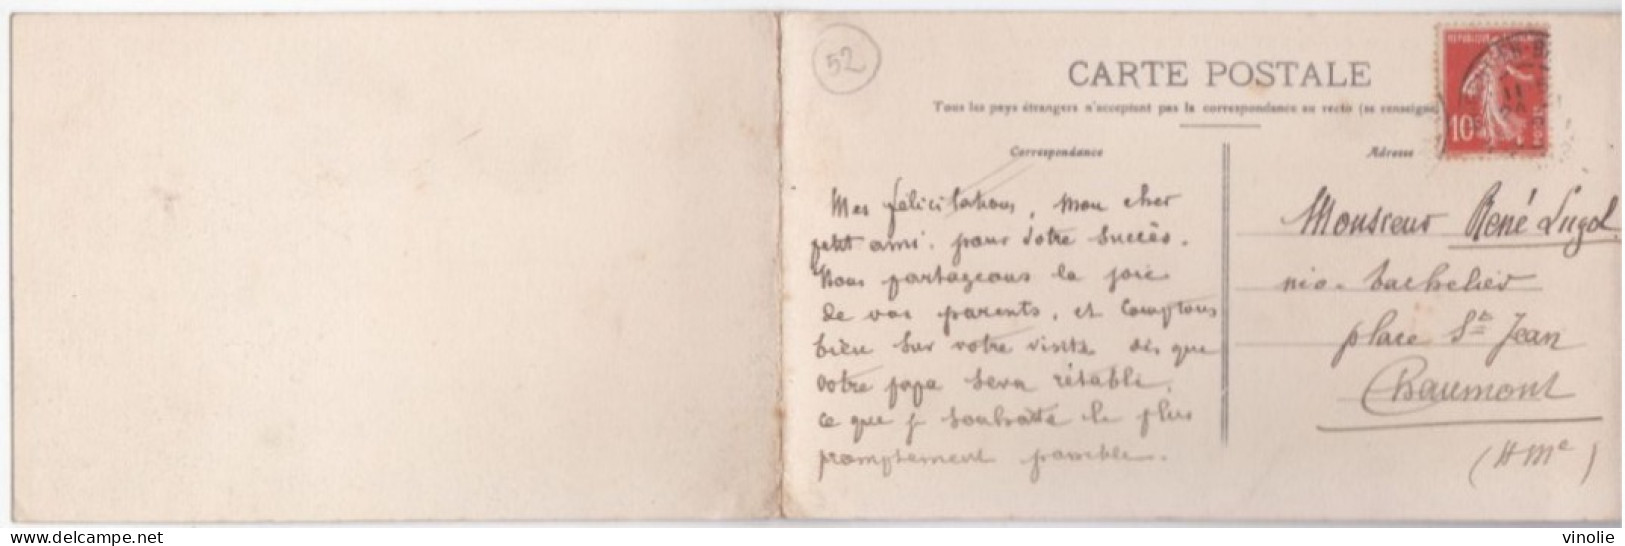 52
CARTE POSTALE
Tous les pays étrangers n'acceptent pas la correspondance au recto (se renseigne
Correspondance
Adresse
10
Mes félicitations, mon cher
petit ami, pour votre succès.
Nous partageons la joie
de vos parents, et comptons
bien sur votre visite dès que
votre papa sera rétabli,
ce que je souhaite le plus
promptement possible.
Monsieur René Lugol
nio-bachelier
place St Jean
Chaumont
(Hme)
delcampe.net
vinolie